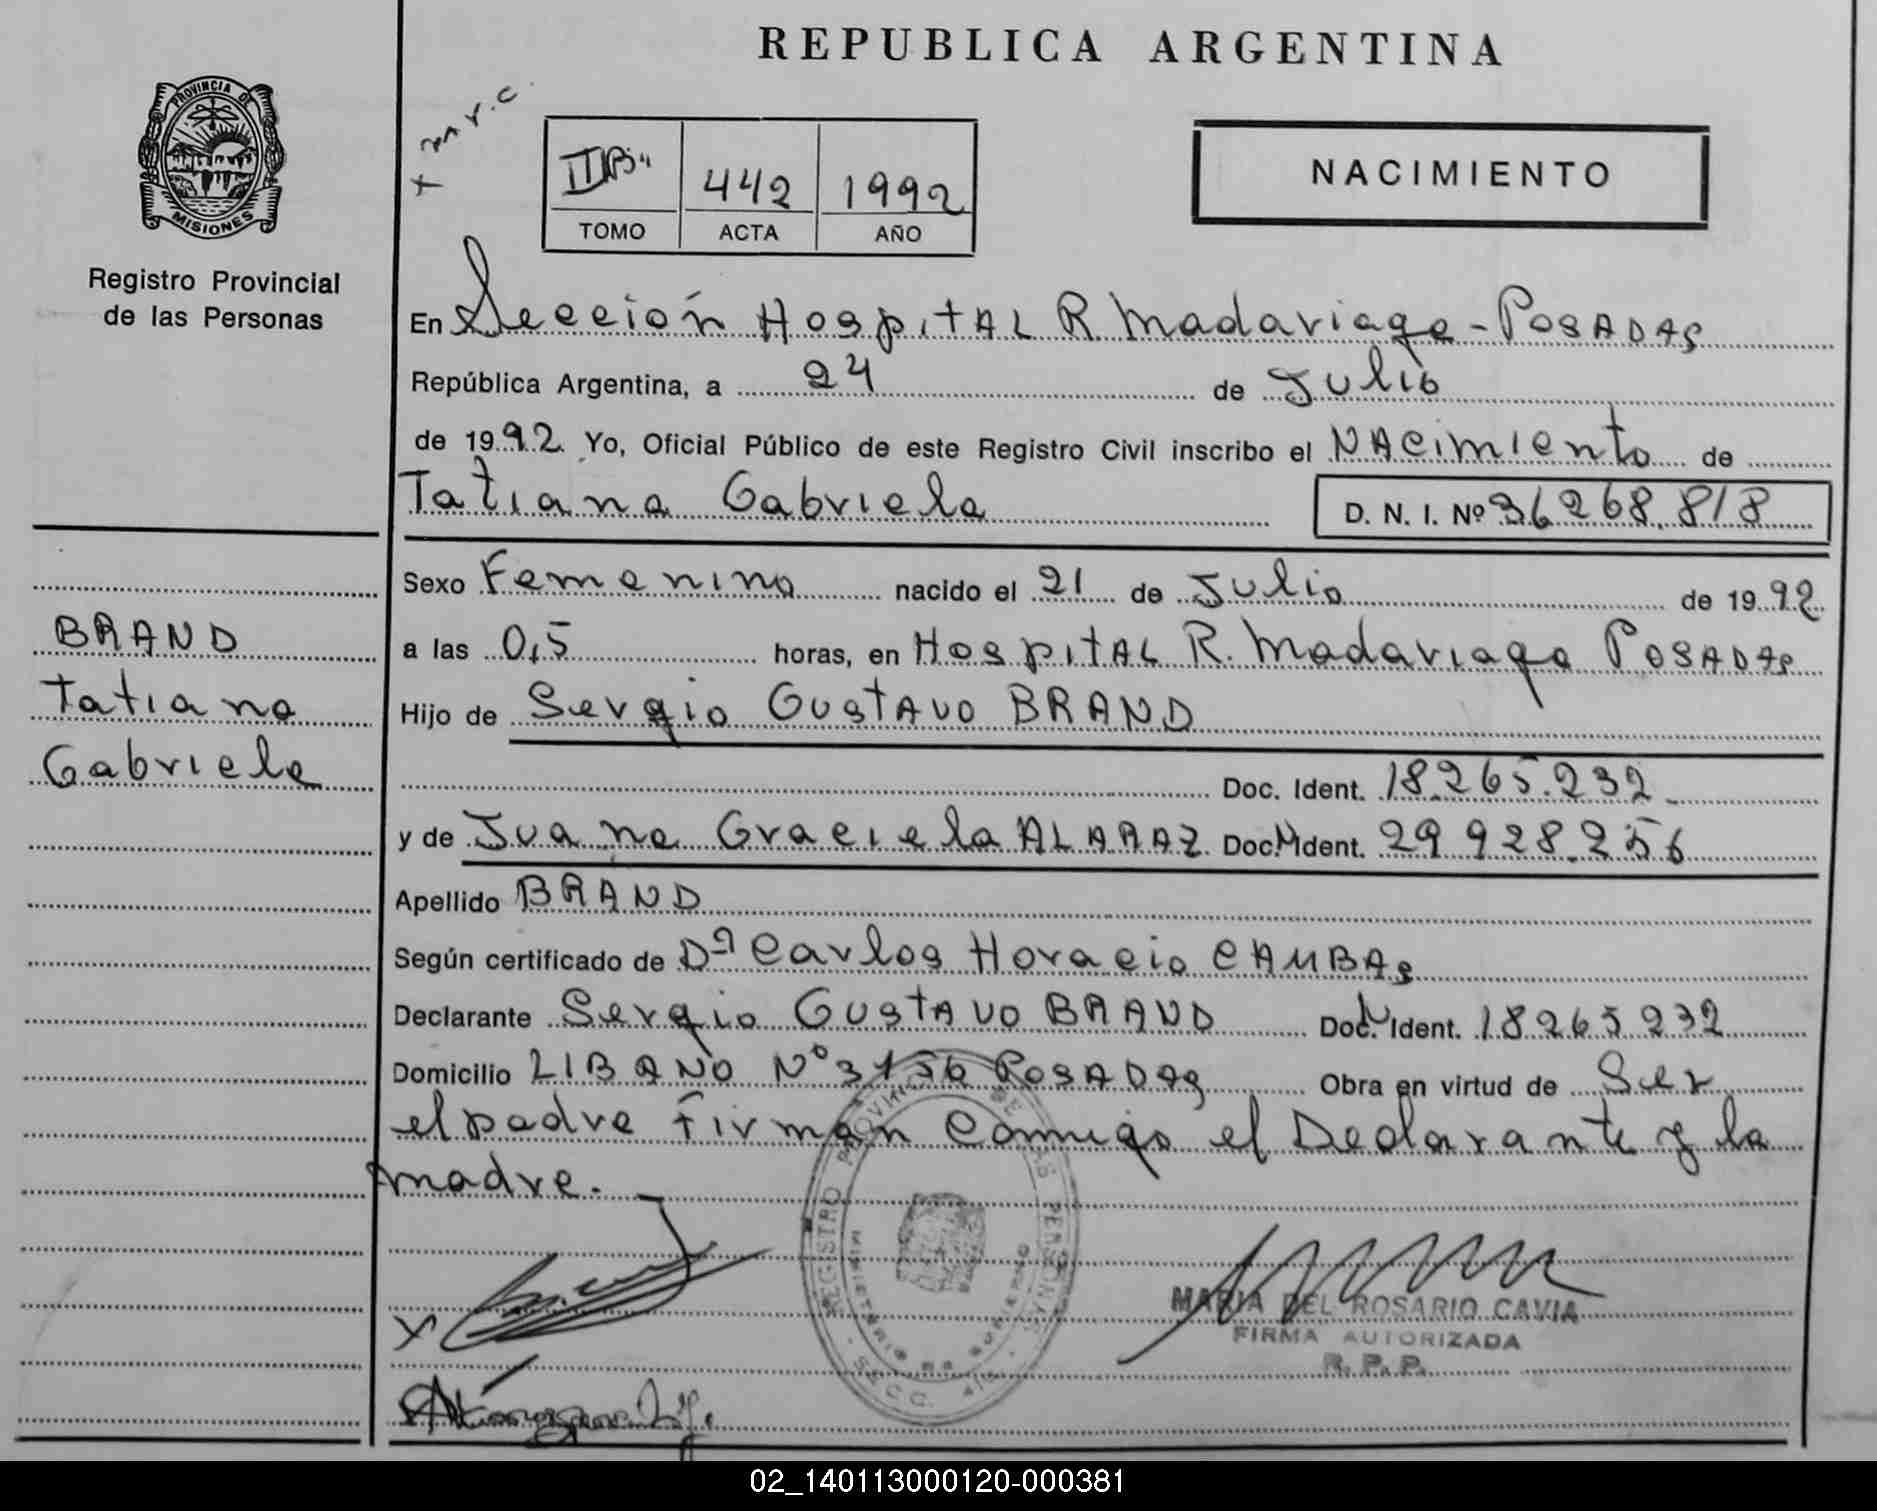 REPUBLICA ARGENTINA
PROVINCIA DE
MISIONES
Registro Provincial
de las Personas
+ m r.c.
II "B"
442
1992
TOMO
ACTA
AÑO
NACIMIENTO
En Sección Hospital R Madariaga - Posadas
República Argentina, a 24 de Julio
de 1992 Yo, Oficial Público de este Registro Civil inscribo el Nacimiento de
Tatiana Gabriela D. N. I. Nº 36268.818
BRAND
Tatiana
Gabriela
Sexo Femenino nacido el 21 de Julio de 1992
a las 0,5 horas, en Hospital R. Madariaga Posadas
Hijo de Sergio Gustavo BRAND
Doc. Ident. 18.265.232
y de Juana Graciela ALARAZ Doc. Ident. 29 928.256
Apellido BRAND
Según certificado de Dº Carlos Horacio CAMBAS
Declarante Sergio Gustavo BRAND Doc. Ident. 18265232
Domicilio LIBANO Nº 3156 Posadas Obra en virtud de Ser
el padre Firman conmigo el Declarante y la
madre.
REGISTRO PROVINCIAL DE LAS PERSONAS
MINISTERIO DE GOBIERNO
SECC.
MARIA DEL ROSARIO CAVIA
FIRMA AUTORIZADA
R. P. P.
02_140113000120-000381